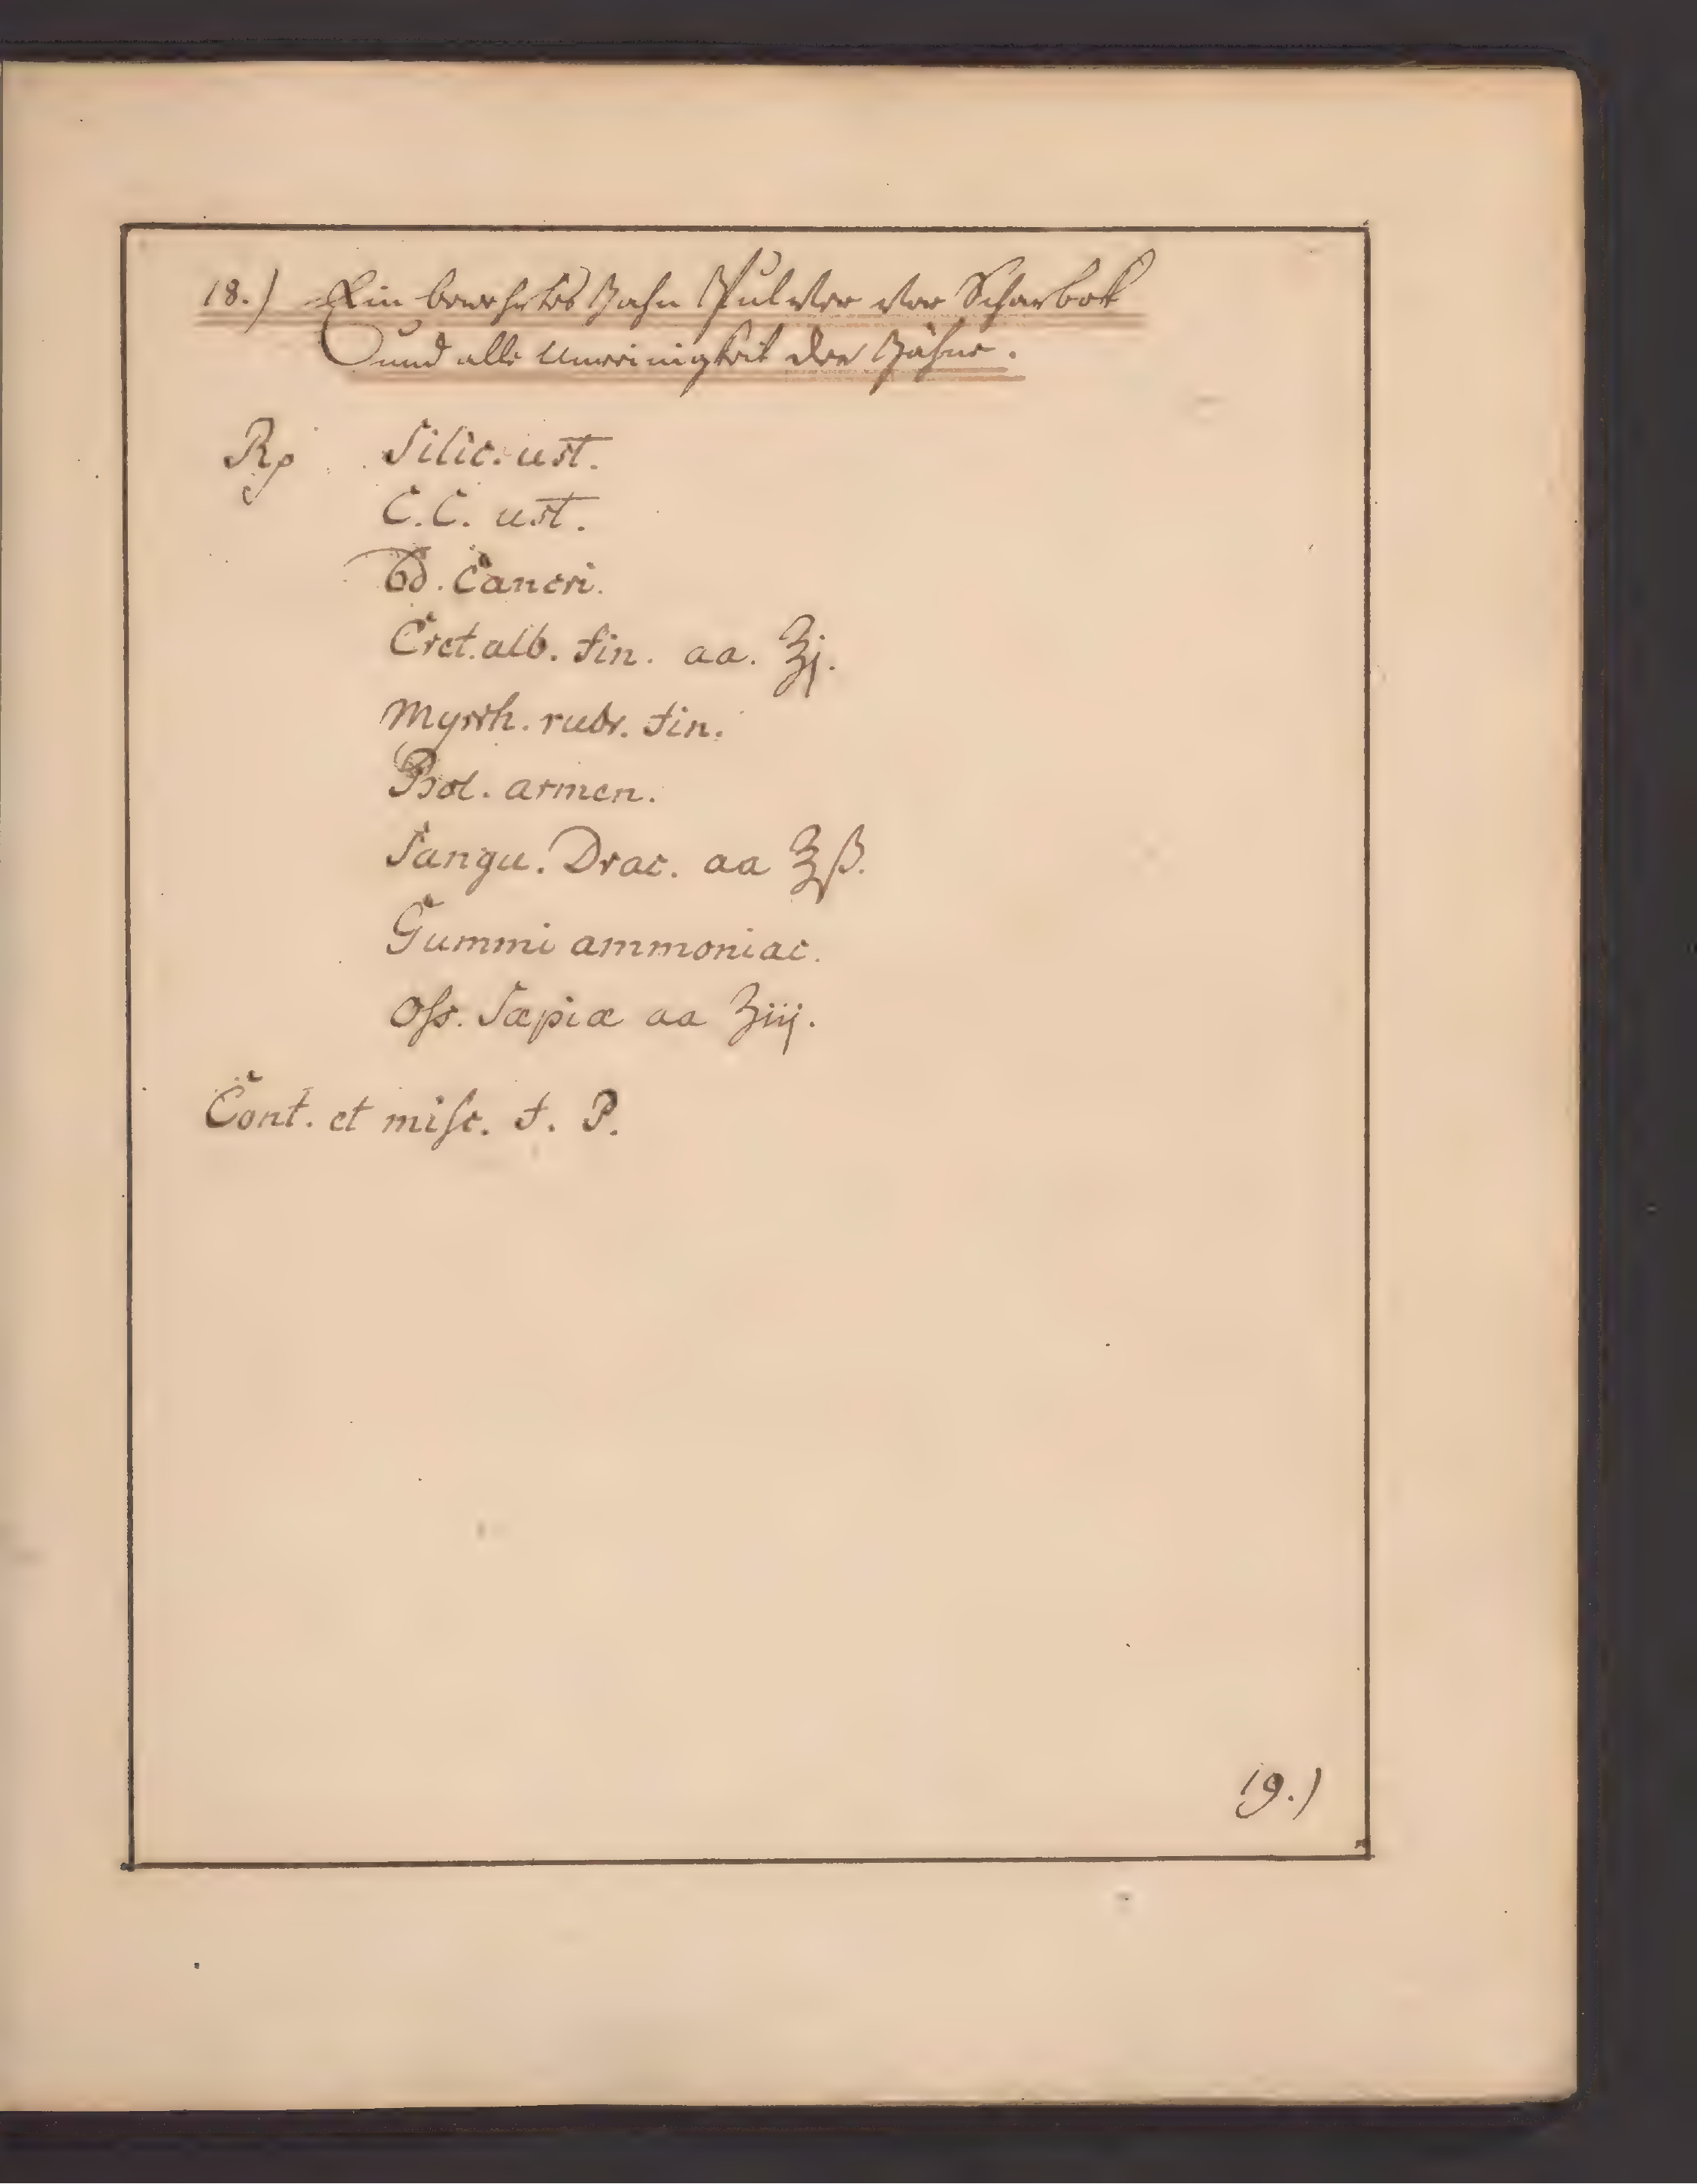 18.) Ein bewehrtes Zahn Pulver vor Scharbok
und alle Unreinigkeit der Zähne.
Rp Silic. ust.
C.C. ust.
♋. Cancri.
Cret. alb. fin. aa. ℥j.
Myrrh. rubr. fin.
Bol. armen.
Sangu. Drac. aa ℥ß.
Gummi ammoniac.
Oſs. Sæpiæ aa ʒiij.
Cont. et miſc. f. P.
19.)